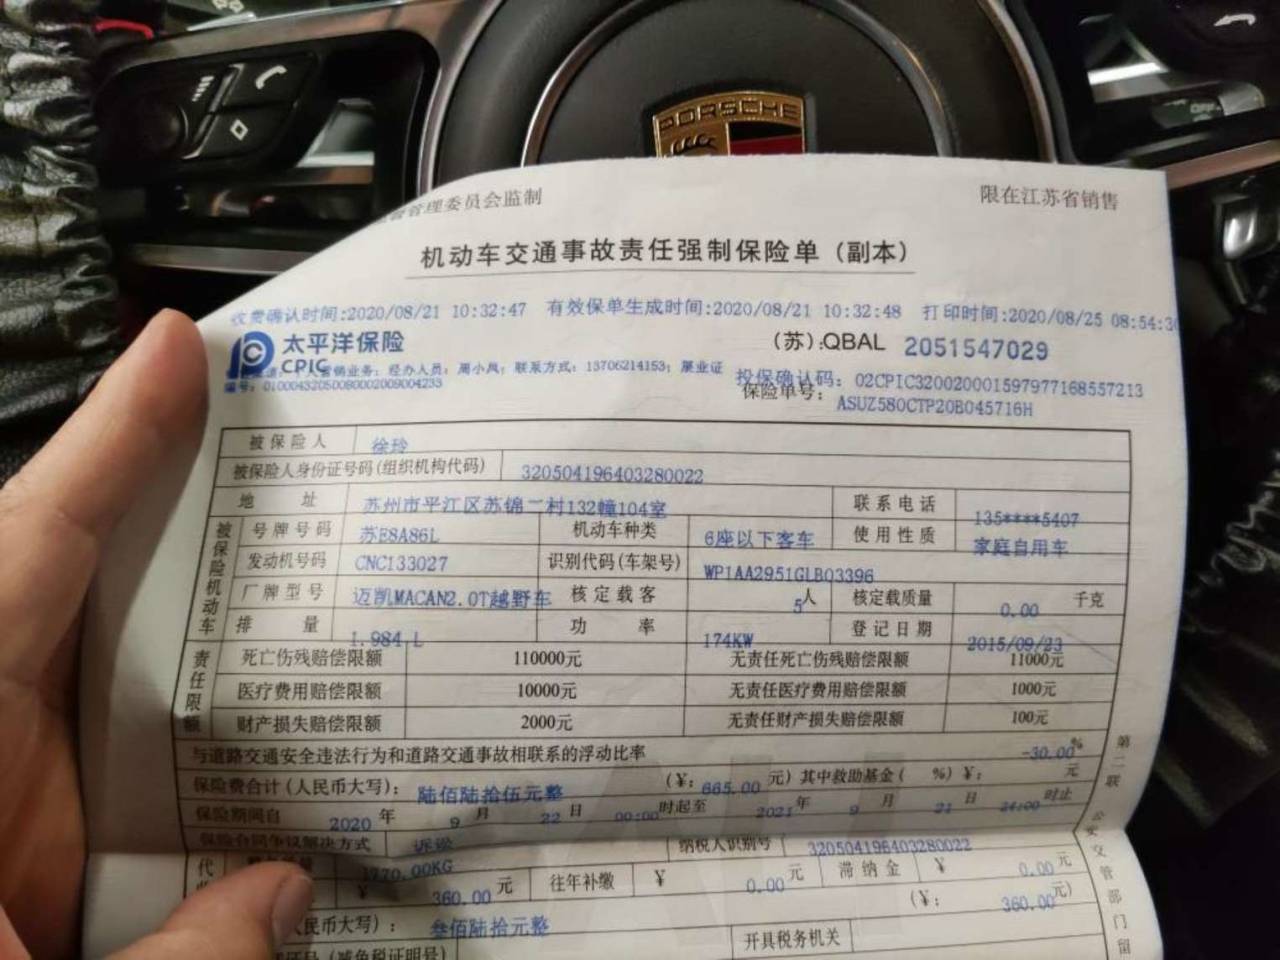 PORSCHE
管理委员会监制
限在江苏省销售
机动车交通事故责任强制保险单（副本）
收费确认时间:2020/08/21 10:32:47 有效保单生成时间:2020/08/21 10:32:48 打印时间:2020/08/25 08:54:3
太平洋保险
CPIC
（苏）:QBAL 2051547029
个人营销业务; 经办人员: 周小凤; 联系方式: 13706214153; 展业证
编号: 01000432050080002009004233
投保确认码: 02CPIC320020001597977168557213
保险单号: ASUZ580CTP20B045716H
被保险人 徐玲
被保险人身份证号码(组织机构代码) 320504196403280022
地址 苏州市平江区苏锦二村132幢104室 联系电话 135****5407
被保险机动车
号牌号码 苏E8A86L 机动车种类 6座以下客车 使用性质 家庭自用车
发动机号码 CNC133027 识别代码(车架号) WP1AA2951GLB03396
厂牌型号 迈凯MACAN2.0T越野车 核定载客 5人 核定载质量 0.00 千克
排量 1.984 L 功率 174KW 登记日期 2015/09/23
责任限额
死亡伤残赔偿限额 110000元 无责任死亡伤残赔偿限额 11000元
医疗费用赔偿限额 10000元 无责任医疗费用赔偿限额 1000元
财产损失赔偿限额 2000元 无责任财产损失赔偿限额 100元
与道路交通安全违法行为和道路交通事故相联系的浮动比率 -30.00%
保险费合计(人民币大写): 陆佰陆拾伍元整 (¥: 665.00 元) 其中救助基金( %) ¥: 元
保险期间自 2020 年 9 月 22 日 00:00 时起至 2021 年 9 月 21 日 24:00 时止
保险合同争议解决方式 诉讼 纳税人识别号 320504196403280022
代
1770.00KG
¥ 360.00 元 往年补缴 ¥ 0.00 元 滞纳金 ¥ 0.00 元
人民币大写): 叁佰陆拾元整 (¥: 360.00 元)
(减免税证明号) 开具税务机关
第二联
公安交管部门留